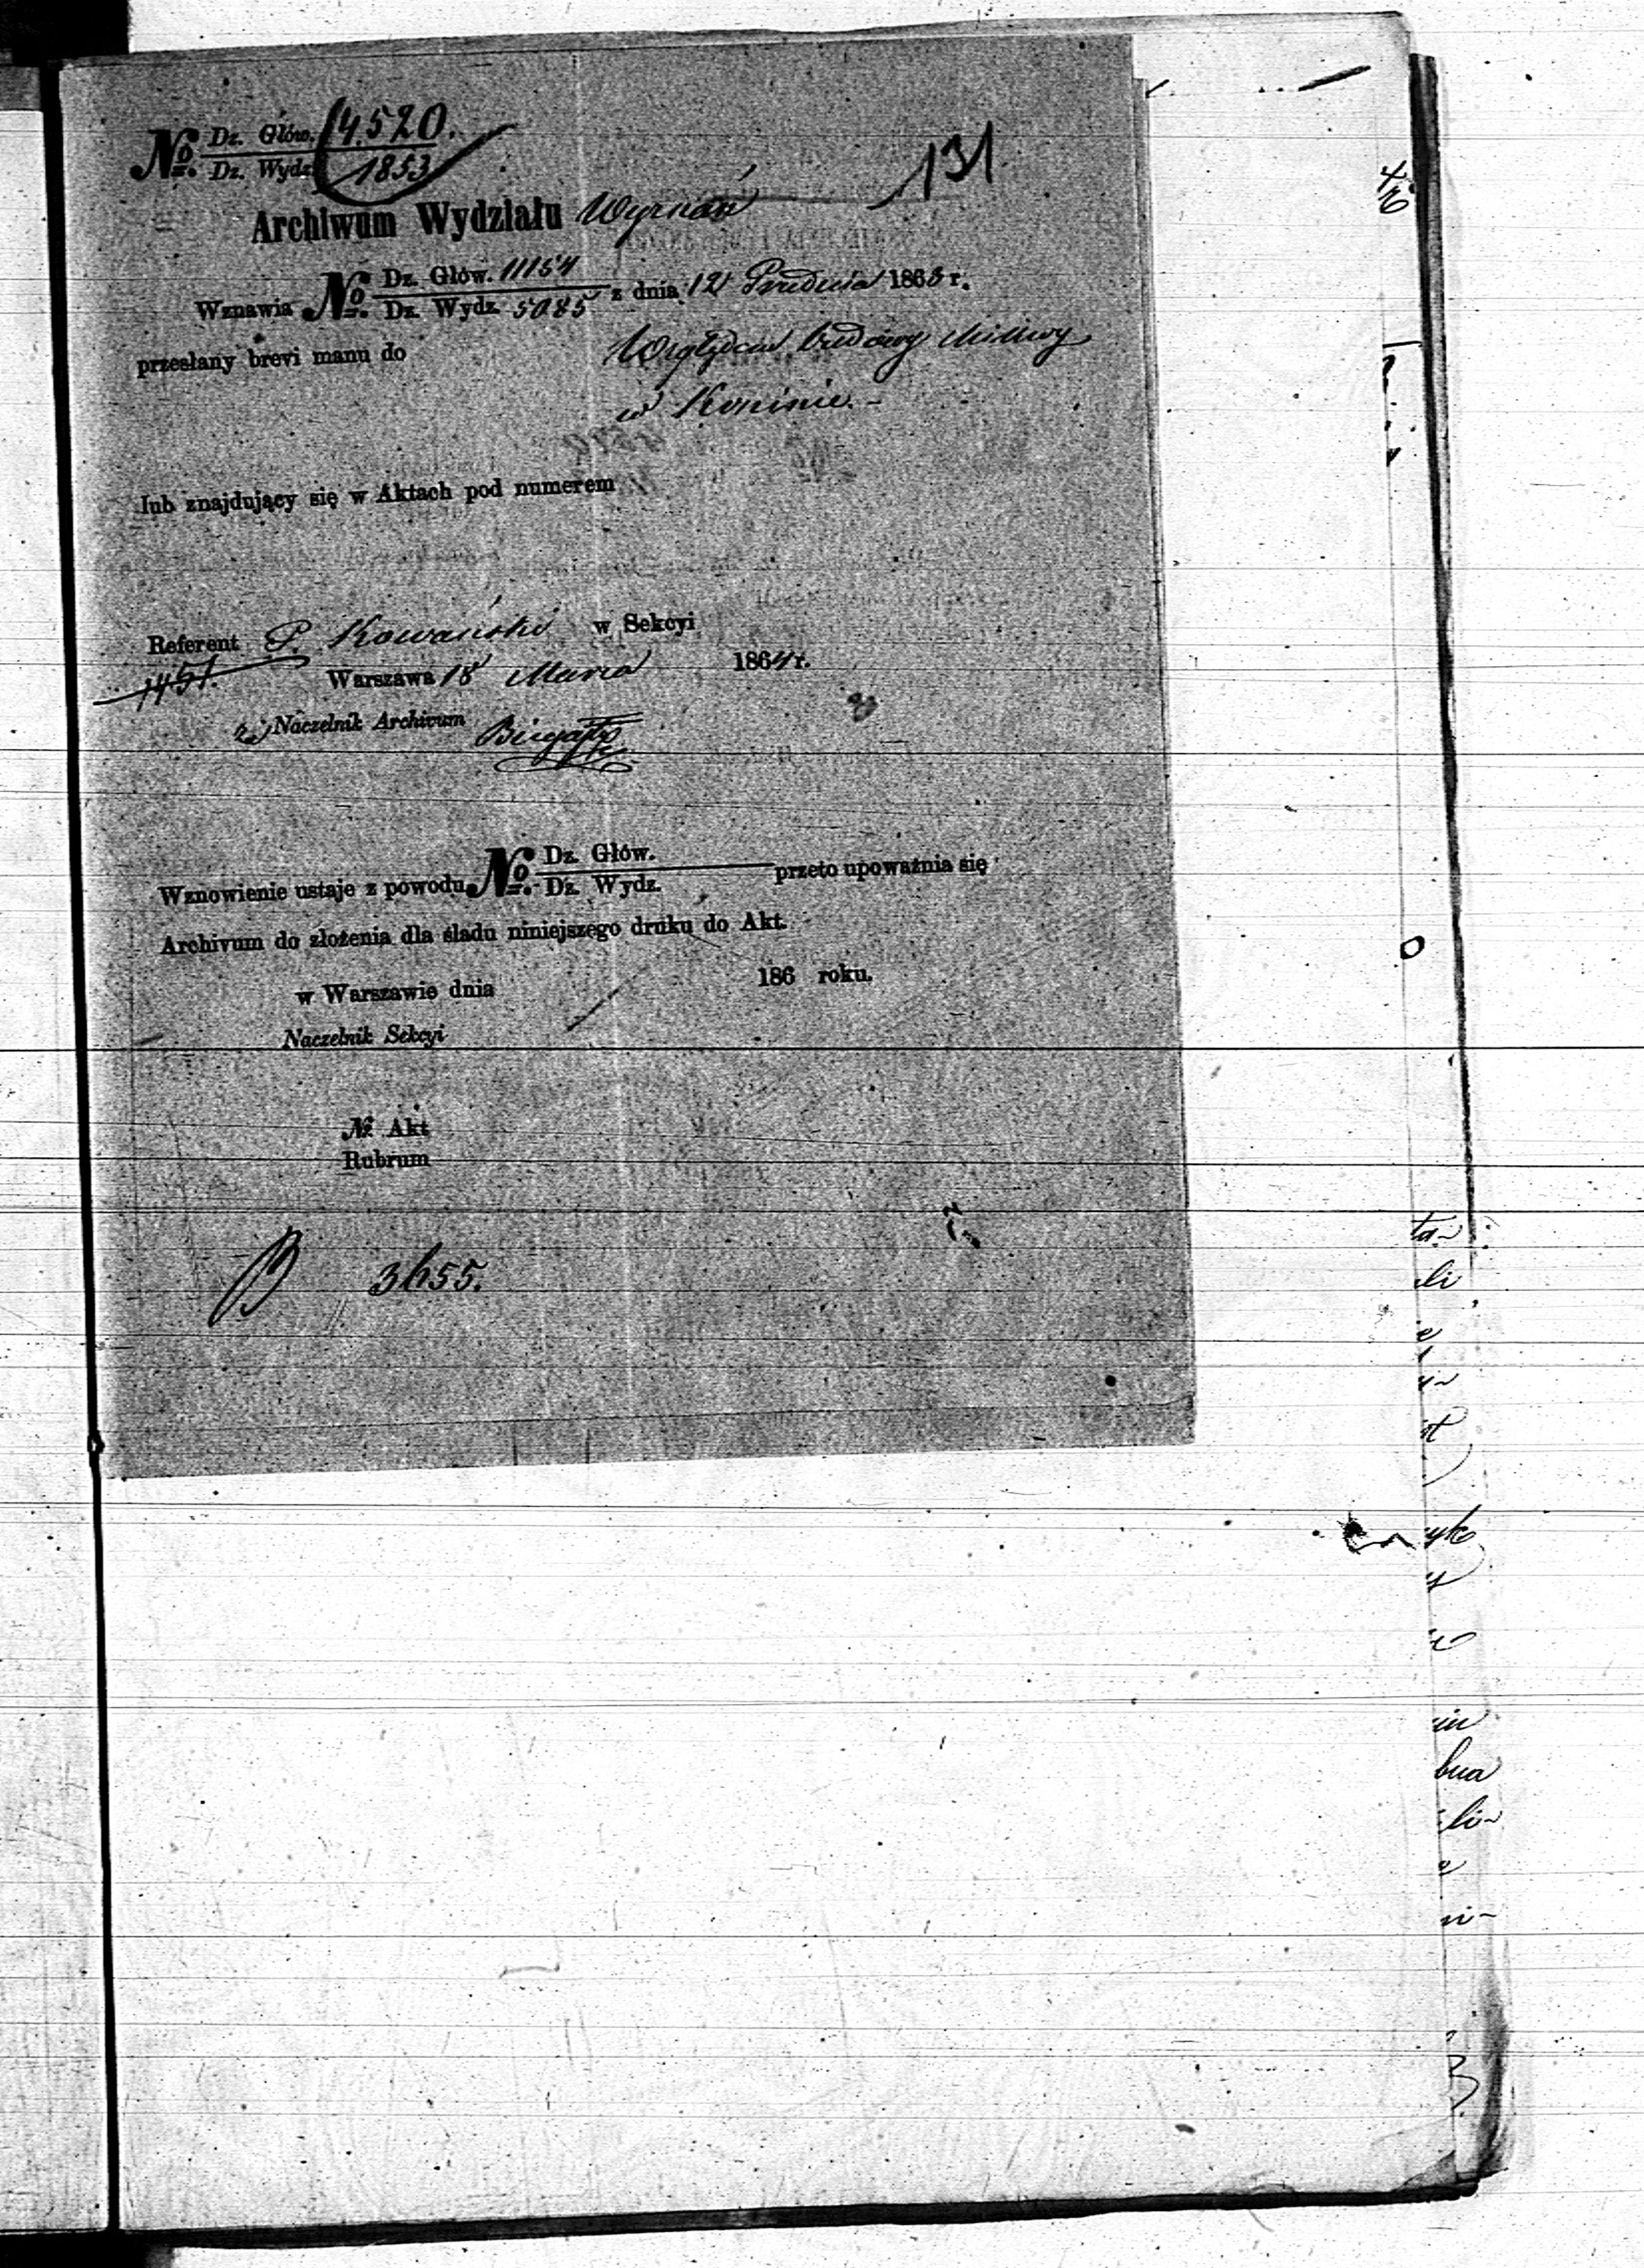 131
No. Dz. Głów. 14.520.
Dz. Wydz. 1853
Archiwum Wydziału Wyznań
Wznawia No. Dz. Głów. 11154 z dnia 12 Grudnia 1863 r.
Dz. Wydz. 5085
przesłany brevi manu do Względem budowy
w Koninie. -
lub znajdujący się w Aktach pod numerem
Referent P. Kowański w Sekcyi
1451. Warszawa 18 Marca 1864 r.
Naczelnik Archivum
Wznowienie ustaje z powodu No. Dz. Głów. przeto upoważnia się
Dz. Wydz.
Archivum do złożenia dla śladu niniejszego druku do Akt.
w Warszawie dnia 186 roku.
Naczelnik Sekcyi
№ Akt
Rubrum
3655.